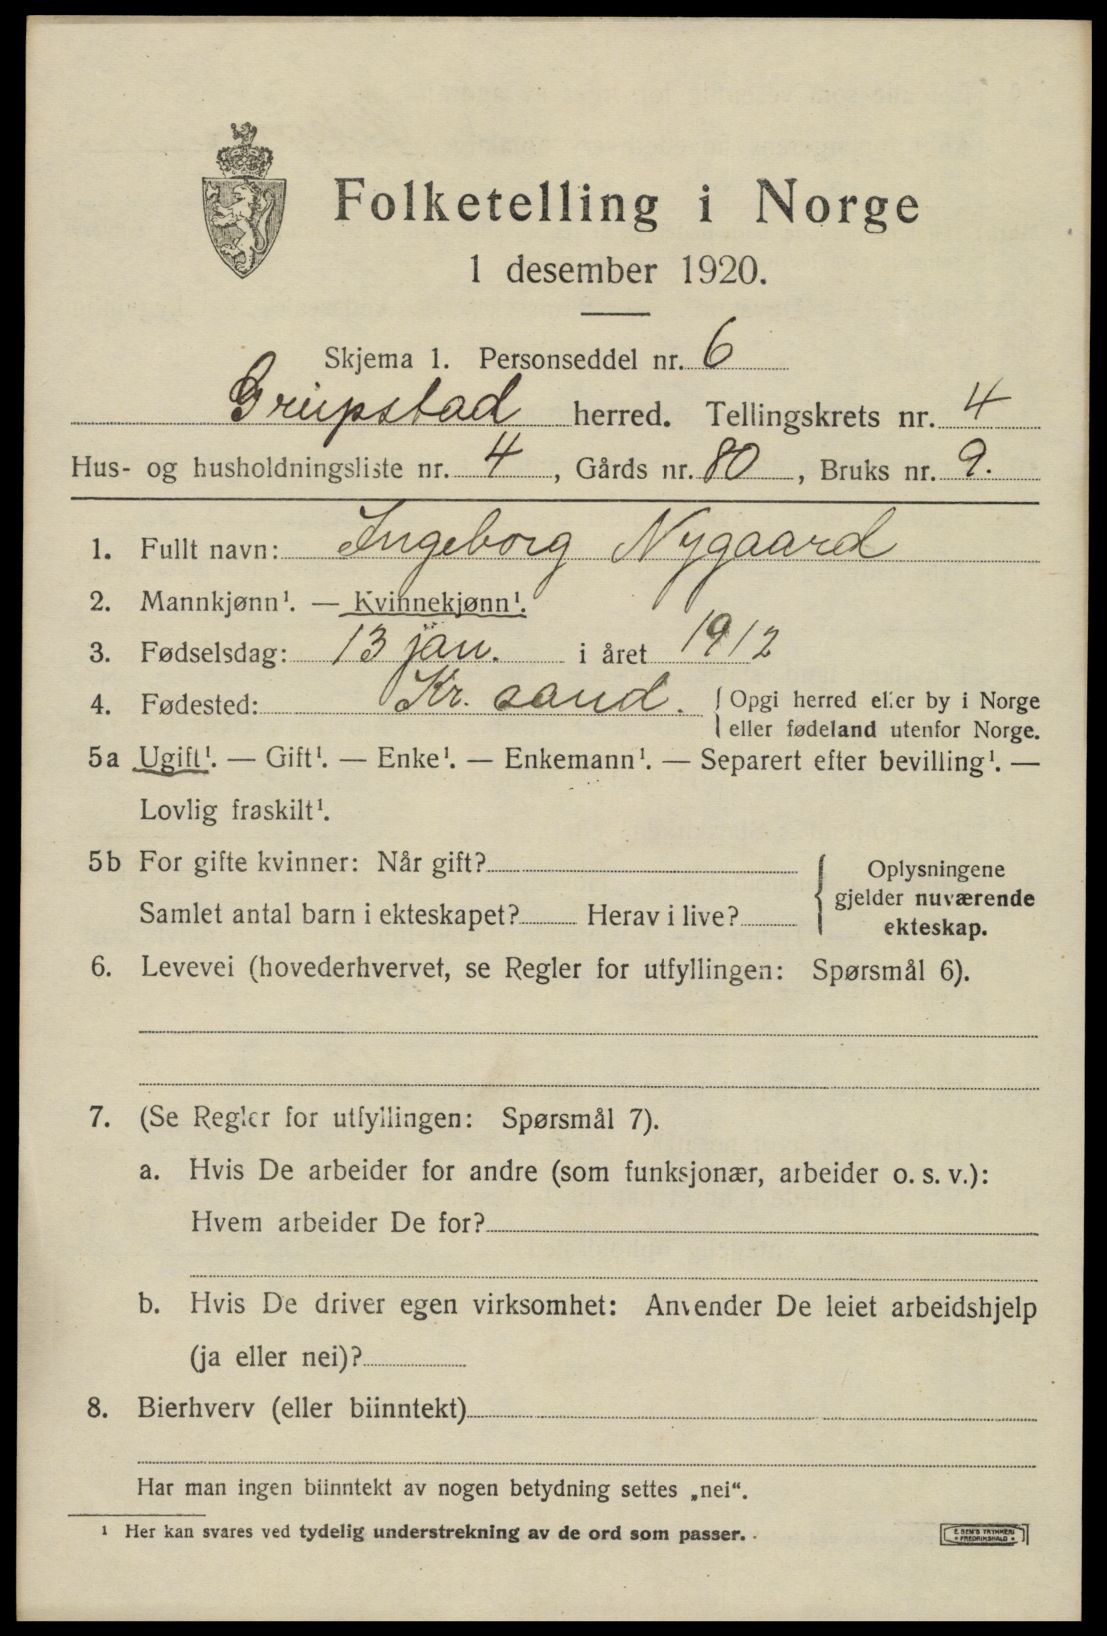 Folketelling i Norge
1 desember 1920.
Skjema 1. Personseddel nr. 6
Greipstad herred. Tellingskrets nr. 4
Hus- og husholdningsliste nr. 4, Gårds nr. 80, Bruks nr. 9.
1. Fullt navn: Ingeborg Nygaard
2. Mannkjønn¹. — Kvinnekjønn¹.
3. Fødselsdag: 13 jan. i året 1912
4. Fødested: Kr. sand. { Opgi herred eller by i Norge
eller fødeland utenfor Norge.
5a Ugift¹. — Gift¹. — Enke¹. — Enkemann¹. — Separert efter bevilling¹. —
Lovlig fraskilt¹.
5b For gifte kvinner: Når gift?
Samlet antal barn i ekteskapet? Herav i live?
{ Oplysningene
gjelder nuværende
ekteskap.
6. Levevei (hovederhvervet, se Regler for utfyllingen: Spørsmål 6).
7. (Se Regler for utfyllingen: Spørsmål 7).
a. Hvis De arbeider for andre (som funksjonær, arbeider o. s. v.):
Hvem arbeider De for?
b. Hvis De driver egen virksomhet: Anvender De leiet arbeidshjelp
(ja eller nei)?
8. Bierhverv (eller biinntekt)
Har man ingen biinntekt av nogen betydning settes „nei“.
¹ Her kan svares ved tydelig understrekning av de ord som passer.
E. SEM'S TRYKKERI
• FREDRIKSHALD •